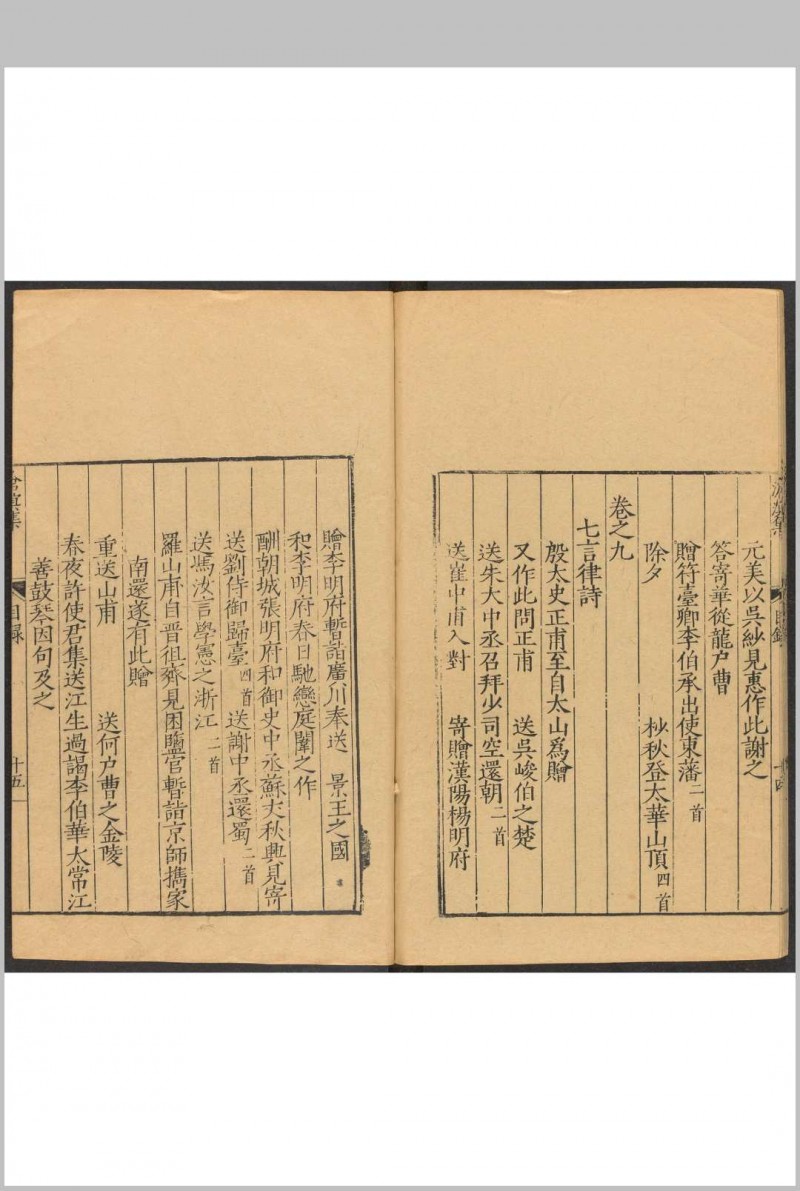 元美以吳紗見惠作此謝之
答寄華從龍户曹
贈符臺卿李伯承出使東藩二首
除夕 杪秋登太華山頂四首
卷之九
七言律詩
殷太史正甫至自太山爲贈
又作此問正甫 送吳峻伯之楚
送朱大中丞召拜少司空還朝二首
送崔中甫入對 寄贈漢陽楊明府
贈李明府暫詣廣川奉送 景王之國
和李明府春日馳戀庭闈之作
酬朝城張明府和御史中丞蘇夫秋興見寄
送劉侍御歸臺四首 送謝中丞還蜀二首
送馮汝言學憲之浙江二首
羅山甫自晋徂齊見困鹽官暫詣京師攜家
南還遂有此贈
重送山甫 送何户曹之金陵
春夜許使君集送江生過謁李伯華太常江
善鼓琴因句及之
目録
十五